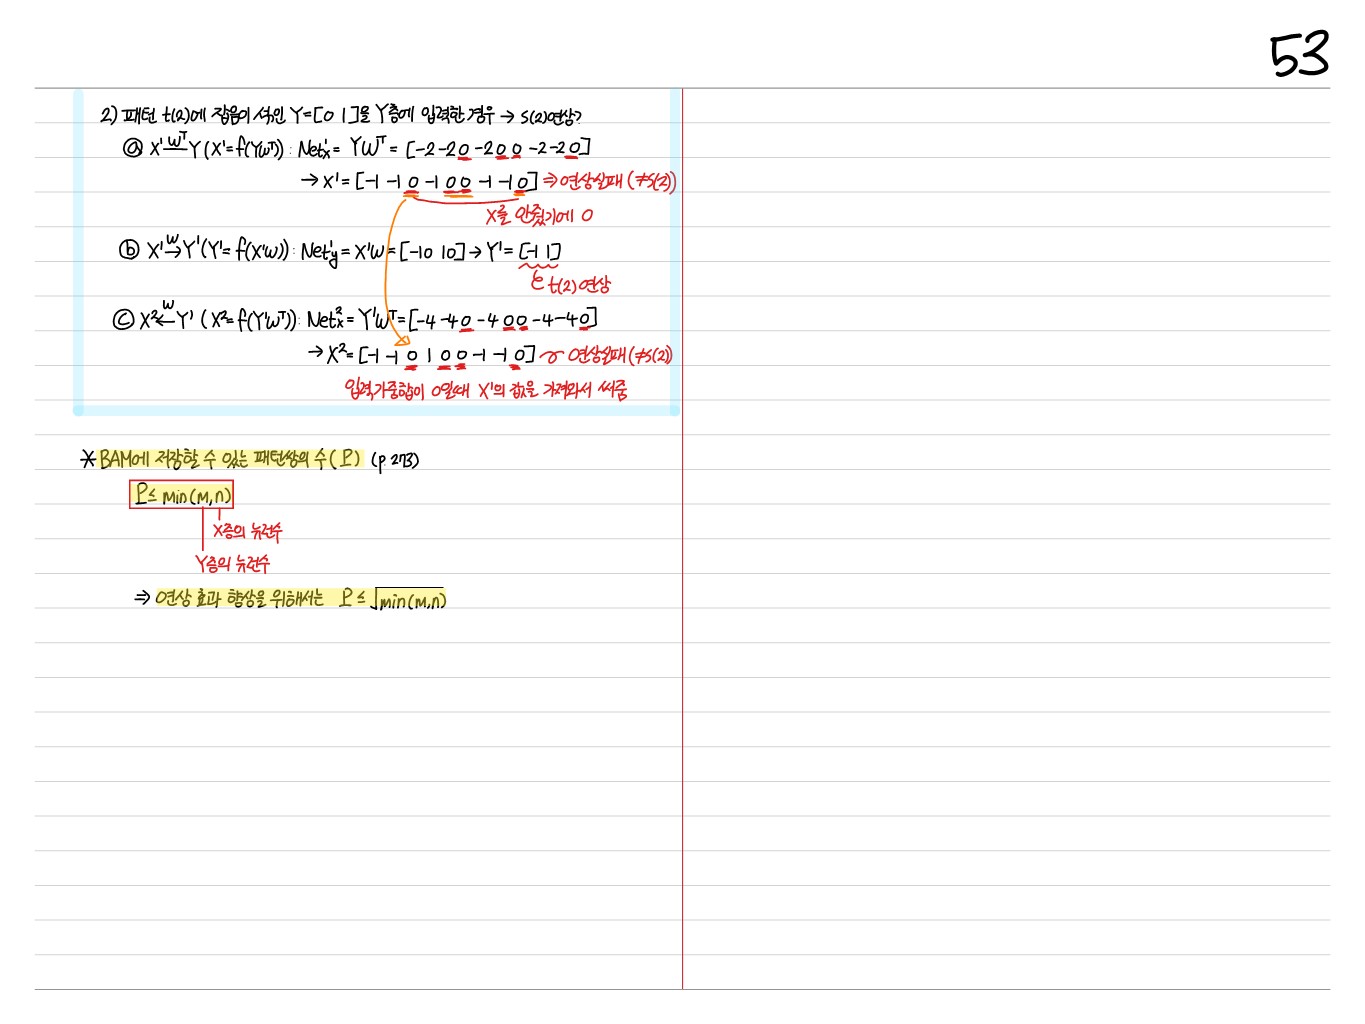 53
2) 패턴 t(2)에 잡음이 섞인 Y=[0 1]을 Y층에 입력한 경우 → S(2)연상?
ⓐ X' ←Wᵀ Y (X'=f(YWᵀ)) : Netx' = YWᵀ = [-2 -2 0 -2 0 0 -2 -2 0]
→ X' = [-1 -1 0 -1 0 0 -1 -1 0] ⇒ 연상실패 (≠S(2))
X를 안줬기에 0
ⓑ X' →W Y' (Y'=f(X'W)) : Nety' = X'W = [-10 10] → Y' = [-1 1]
t(2) 연상
ⓒ X² ←W Y' (X²=f(Y'Wᵀ)) : Netx² = Y'Wᵀ = [-4 -4 0 -4 0 0 -4 -4 0]
→ X² = [-1 -1 0 1 0 0 -1 -1 0] 연상실패 (≠S(2))
입력가중합이 0일때 X'의 값을 가져와서 써줌
* BAM에 저장할 수 있는 패턴쌍의 수 (P) (p.273)
P ≤ min(m,n)
X층의 뉴런수
Y층의 뉴런수
⇒ 연상 효과 향상을 위해서는 P ≤ √min(m,n)